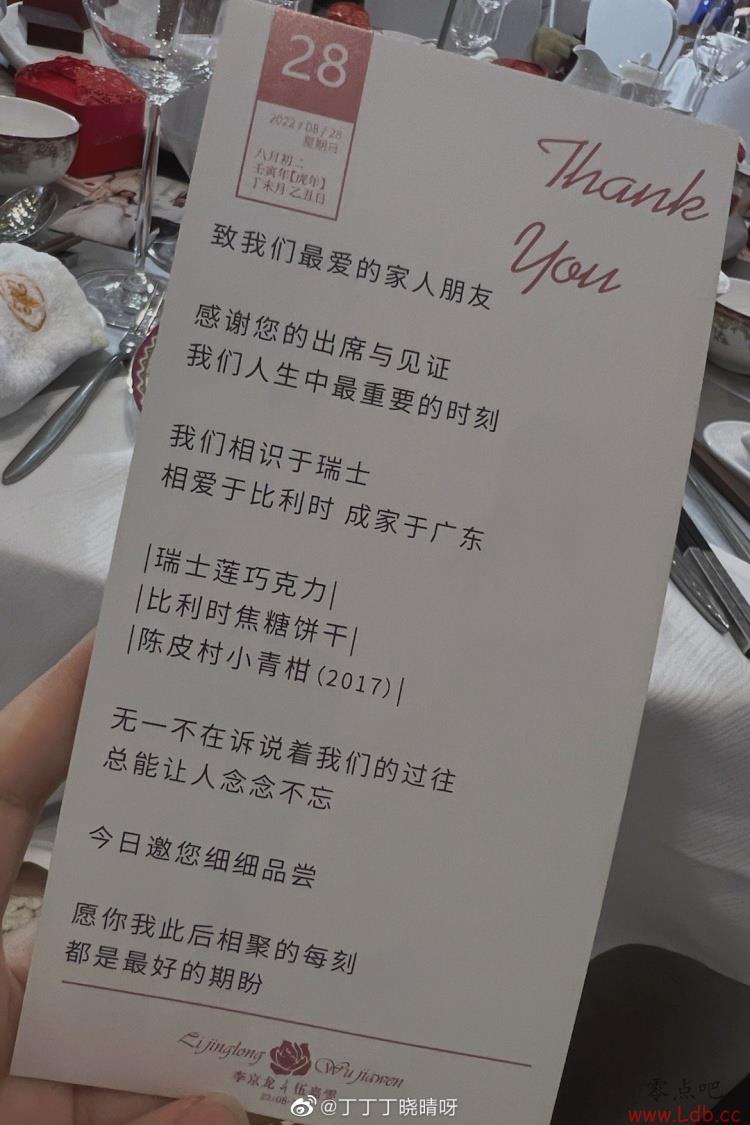 28
2022 / 08 / 28
星期日
八月初二
壬寅年【虎年】
丁未月 乙丑日
Thank
You
致我们最爱的家人朋友
感谢您的出席与见证
我们人生中最重要的时刻
我们相识于瑞士
相爱于比利时 成家于广东
|瑞士莲巧克力|
|比利时焦糖饼干|
|陈皮村小青柑(2017)|
无一不在诉说着我们的过往
总能让人念念不忘
今日邀您细细品尝
愿你我此后相聚的每刻
都是最好的期盼
Lijinglong Wu jiawen
李京龙 & 伍嘉雯
@丁丁丁晓晴呀
零点吧
www.Ldb.cc